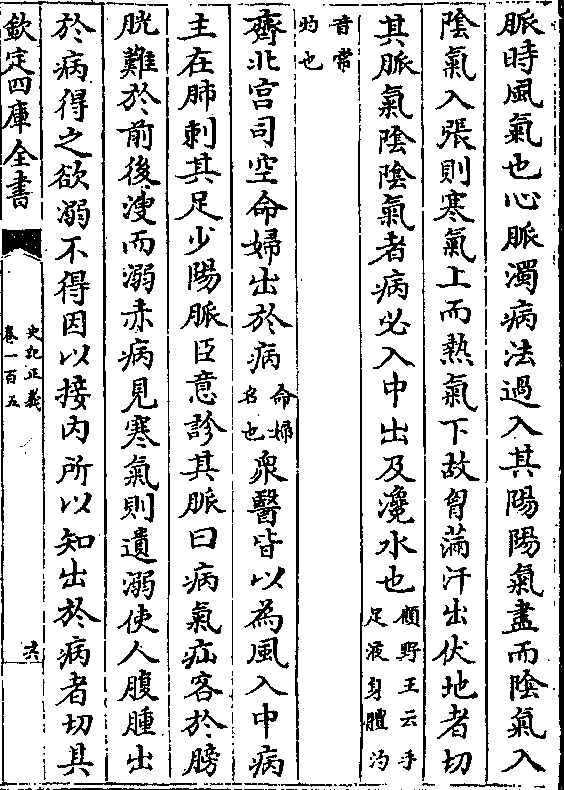 脈時風氣也心脈濁病法過入其陽陽氣盡而陰氣入
陰氣入張則寒氣上而熱氣下故胷滿汗出伏地者切
其脈氣陰陰氣者病必入中出及瀺水也顧野王云手足液身體汋
音常灼也
齊北宫司空命婦出於病命婦名也衆醫皆以為風入中病
主在肺刺其足少陽脈臣意診其脈曰病氣疝客於膀
胱難於前後溲而溺赤病見寒氣則遺溺使人腹腫出
於病得之欲溺不得因以接内所以知出於病者切其
欽定四庫全書
史記正義
卷一百五
六